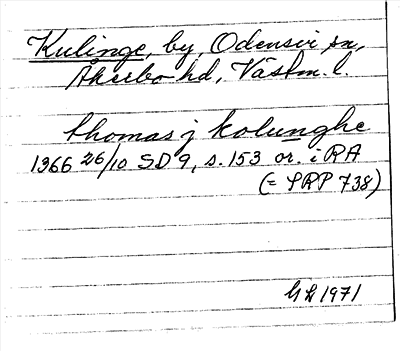 Kulinge, by, Odensvi sn,
Åkerbo hd, Västm. l.
thomas j kolunghe
1366 26/10 SD 9, s. 153 or. i RA
(= SRP 738)
GL 1971